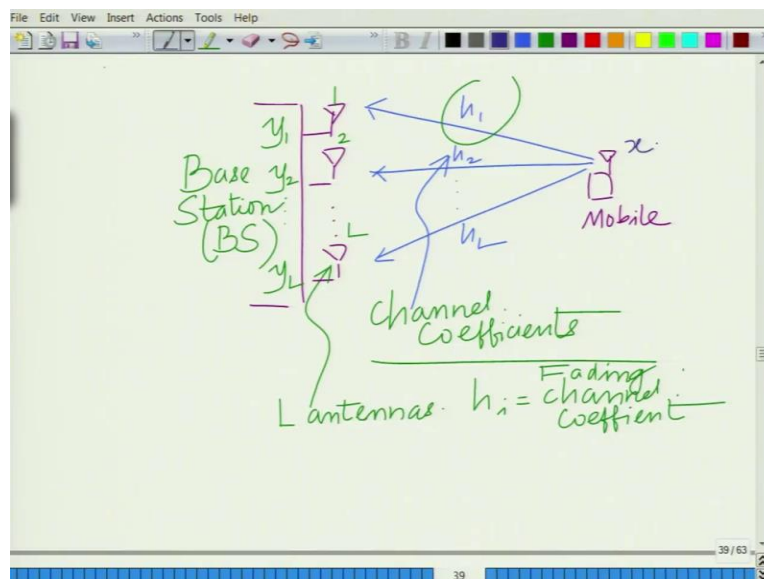 File Edit View Insert Actions Tools Help
B I
1
y₁ h₁
2
Base y₂ h₂ x
Station:
(BS) L Mobile
y_L h_L
Channel
Coefficients
L antennas. hᵢ = Fading
channel
coeffient
39 / 63
39